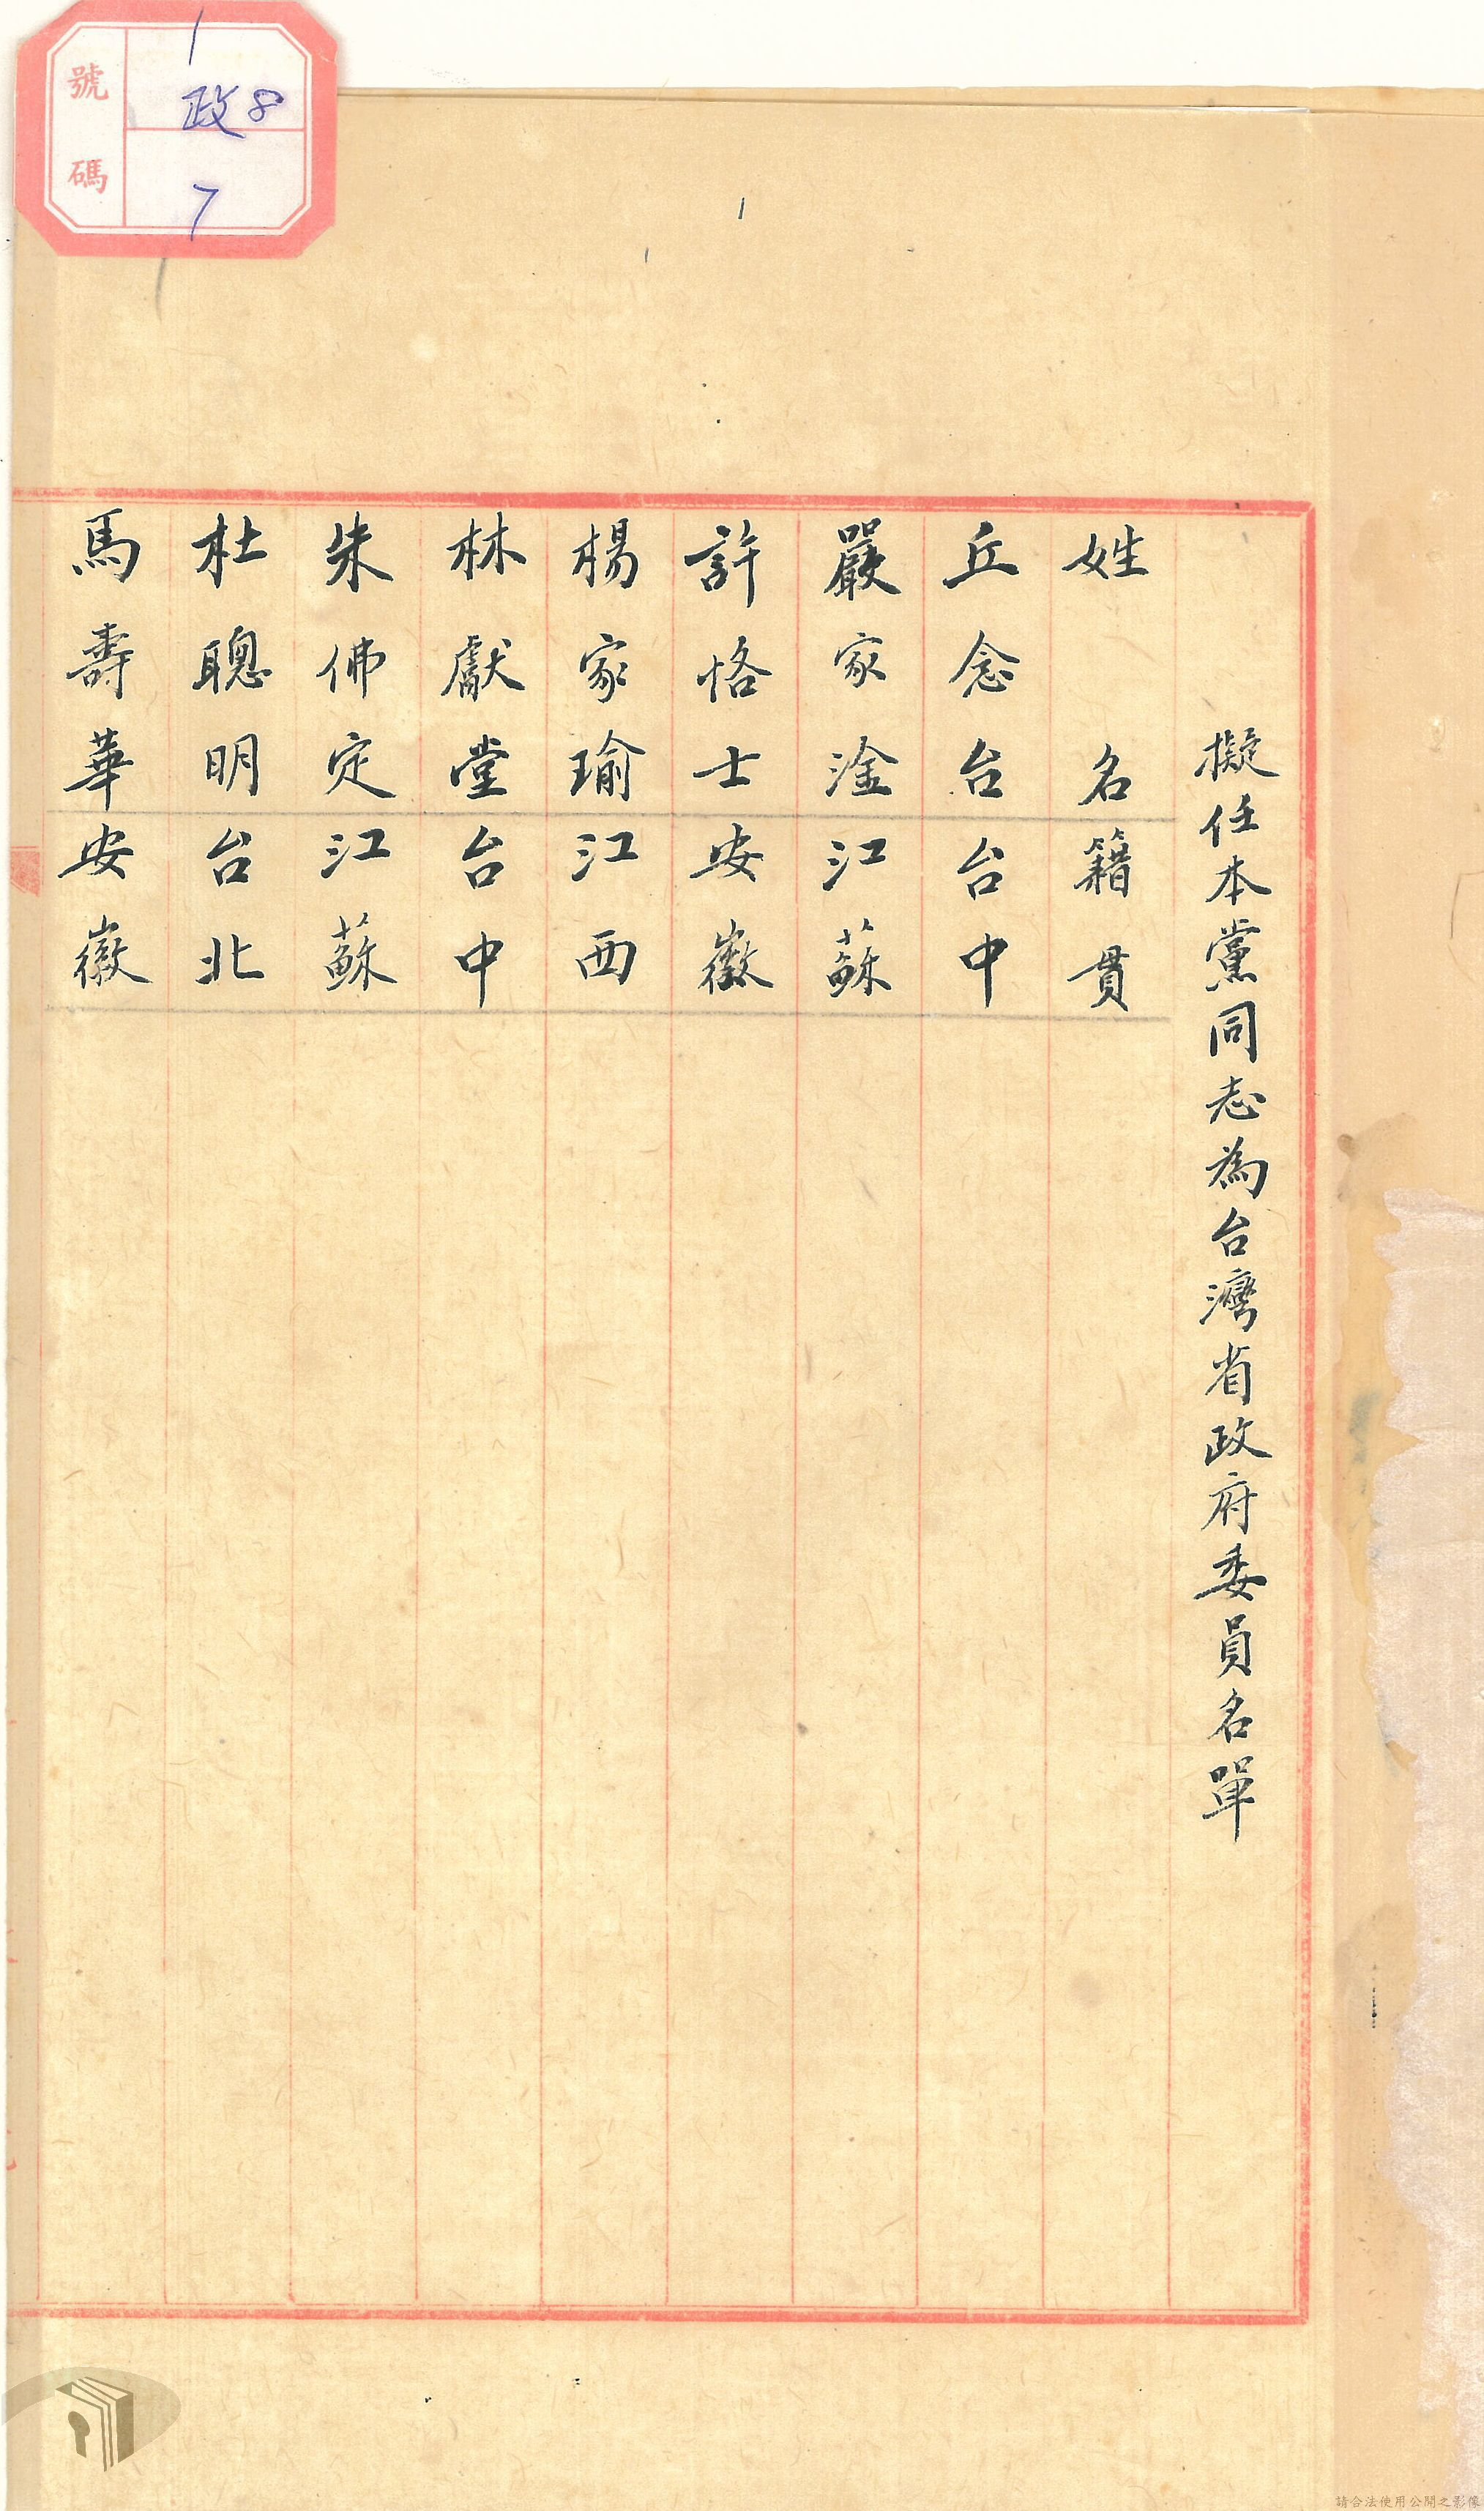 號碼
政8
7
擬任本黨同志為台灣省政府委員名單
姓名 籍貫
丘念台 台中
嚴家淦 江蘇
許恪士 安徽
楊家瑜 江西
林獻堂 台中
朱佛定 江蘇
杜聰明 台北
馬壽華 安徽
請合法使用公開之影像